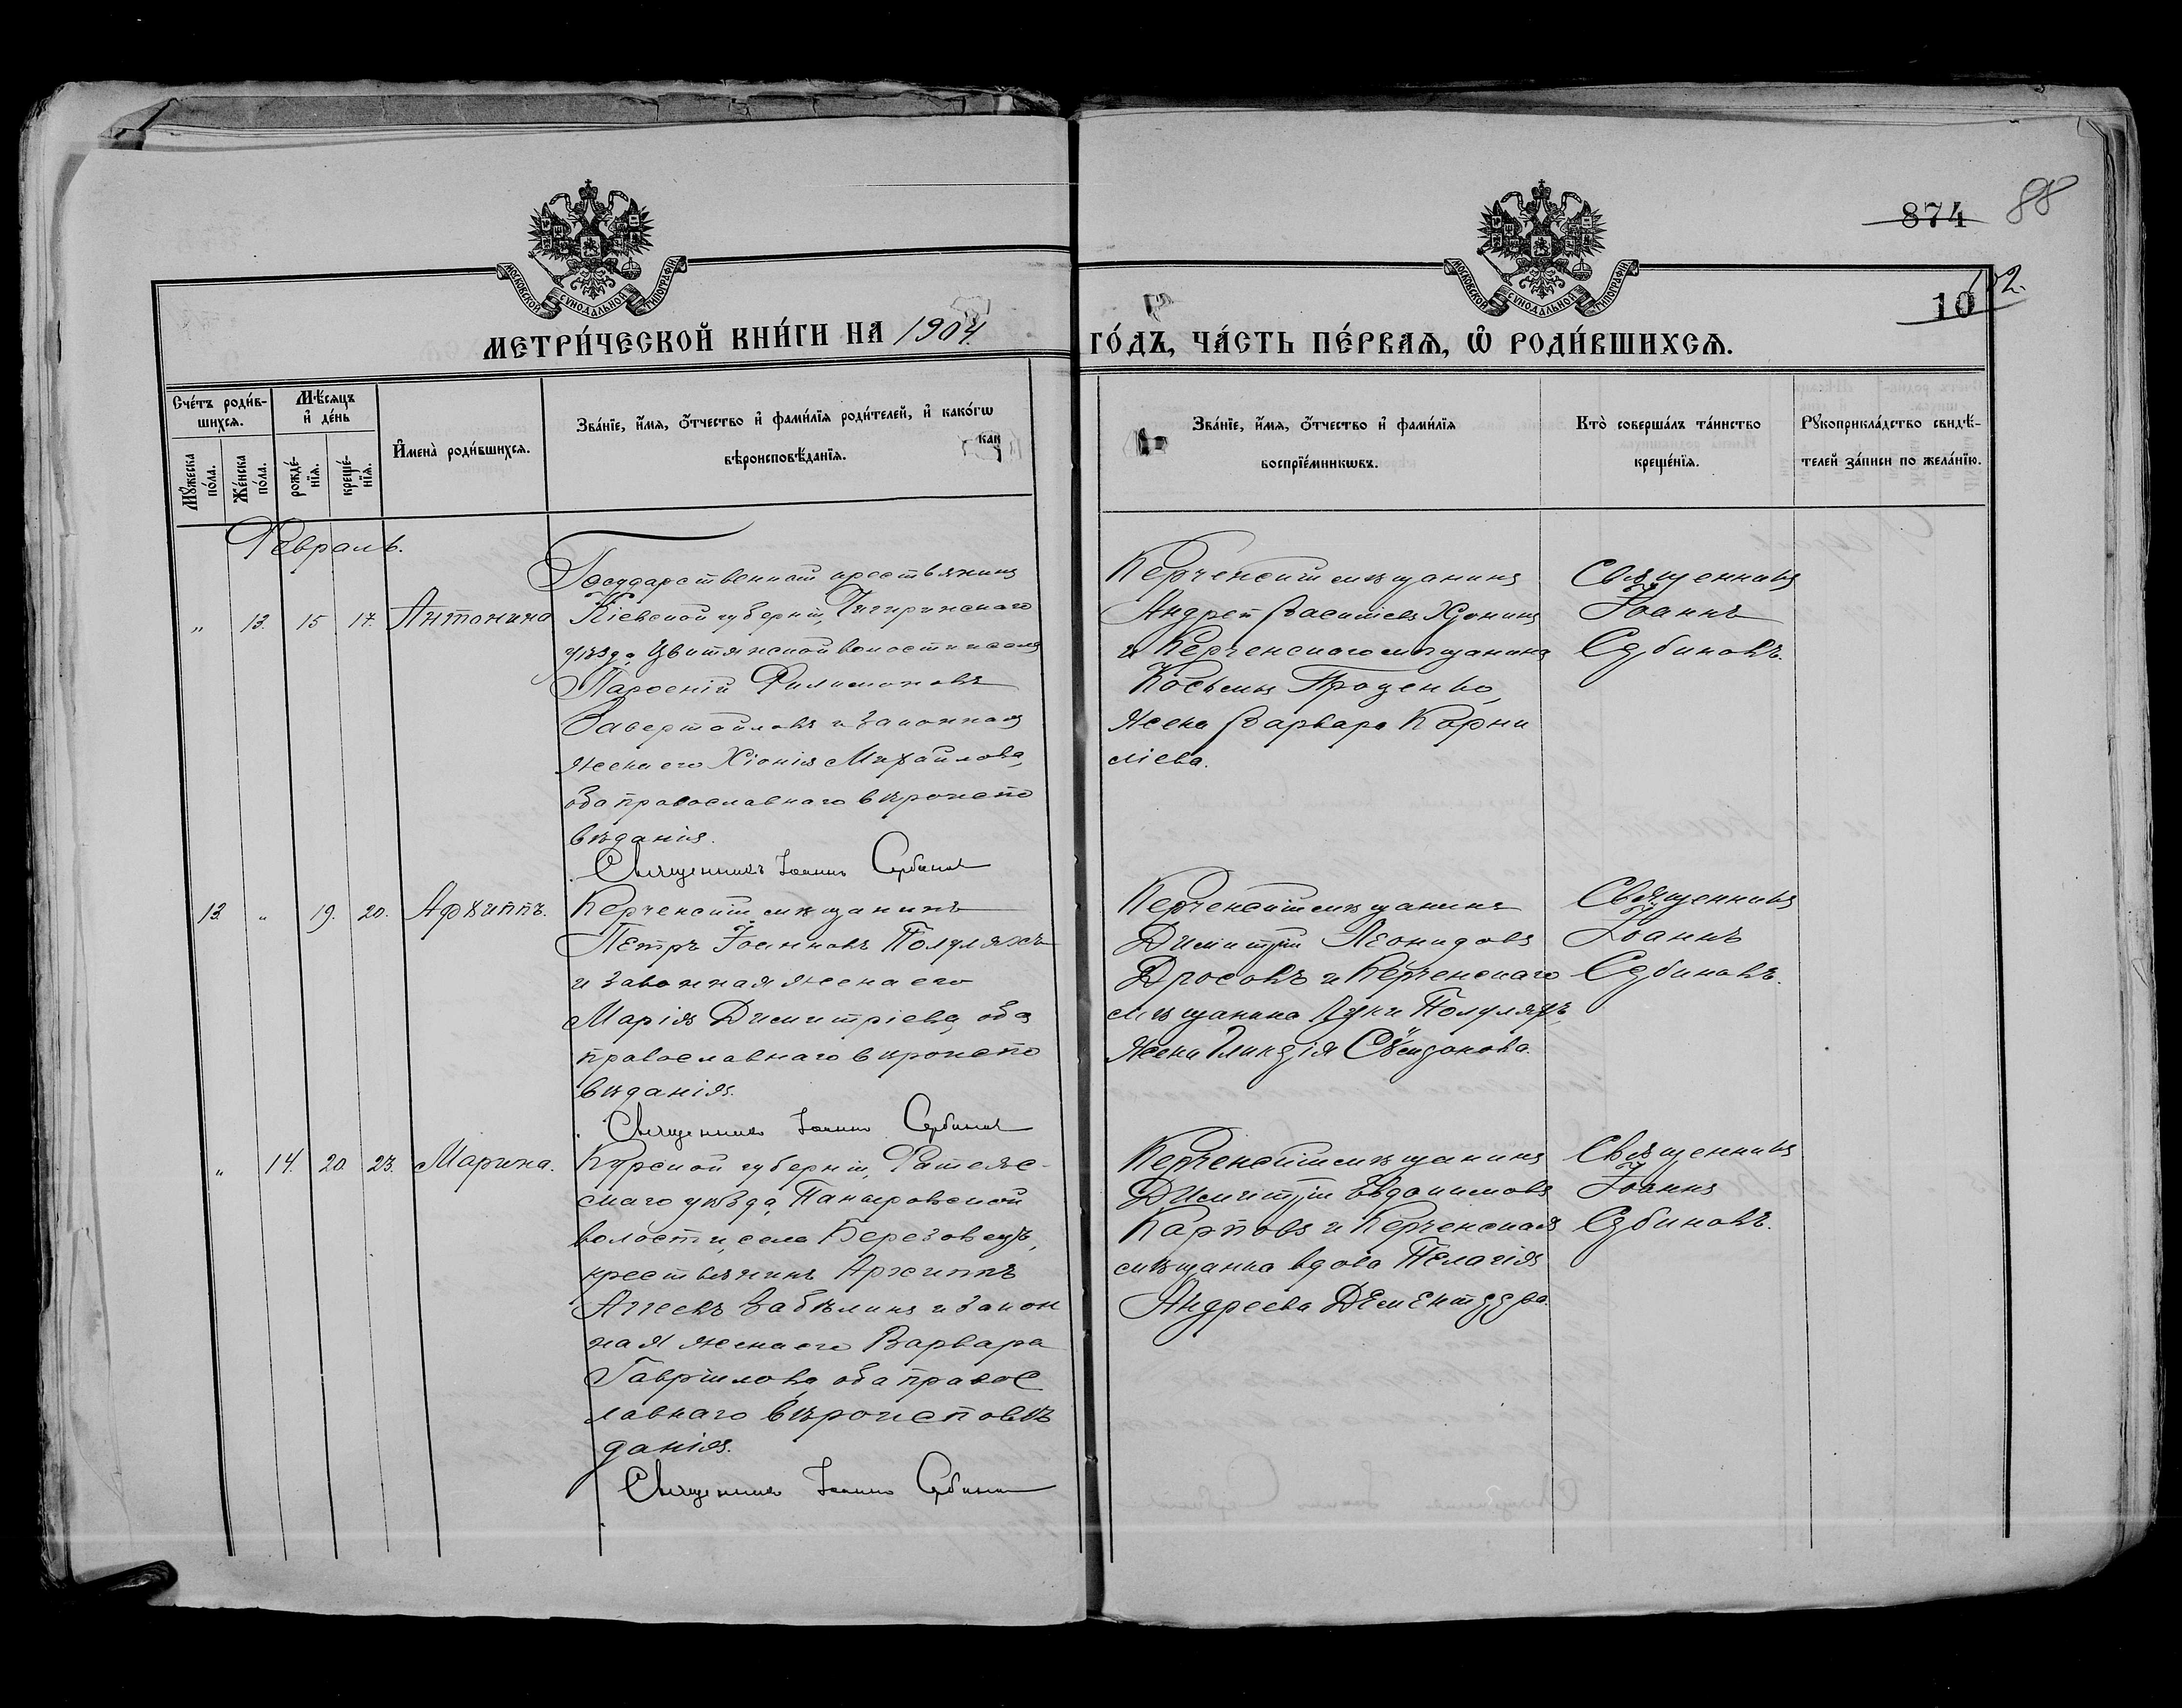 874 88
10 102.
МОСКОВСКОЙ СѴНОДАЛЬНОЙ ТИПОГРАФІИ
МОСКОВСКОЙ СѴНОДАЛЬНОЙ ТИПОГРАФІИ
МЕТРИ́ЧЕСКОЙ КНИ́ГИ НА 1904.
ГО́ДЪ, ЧА́СТЬ ПЕ́РВАѦ, Ѡ҆ РОДИ́ВШИХСѦ.
Сче́тъ роди́в-
шихсѧ.
Мꙋ́жеска
по́ла.
Же́нска
по́ла.
Мѣ́сѧцъ
и҆ де́нь
рожде́-
нїѧ.
креще́-
нїѧ.
И҆мена̀ роди́вшихсѧ.
Зва́нїе, и҆́мѧ, ѻ҆́тчество и҆ фами́лїѧ роди́телей, и҆ како́гѡ
вѣроисповѣ́данїѧ.
Зва́нїе, и҆́мѧ, ѻ҆́тчество и҆ фами́лїѧ
воспрїе́мникѡвъ.
Кто̀ соверша́лъ та́инство
креще́нїѧ.
Рꙋкоприкла́дство свидѣ́-
телей за́писи по жела́нїю.
Февраль.
„ 13. 15 17. Антонина
Государственный крестьянинъ
Кіевской губерніи, Чигиринскаго
уѣзда, Цвитянской волости и села
Парѳеній Филимоновъ
и законная
жена его Хіонія Михайлова,
оба православнаго вѣроиспо
вѣданія.
Священникъ Іоаннъ Сербиновъ
Керченскій мѣщанинъ
Андрей Василіевъ
и Керченскаго мѣщанина
Косьмы Проценко,
жена Варвара Корни
ліева.
Священникъ
Іоаннъ
Сербиновъ.
13. „ 19. 20.
Керченскій мѣщанинъ
Петръ Іоанновъ Полуляхъ
и законная жена его
Марія Димитріева, оба
православнаго вѣроиспо
вѣданія.
Священникъ Іоаннъ Сербиновъ
Керченскій мѣщанинъ
Димитрій Леонидовъ
Дросовъ и Керченскаго
мѣщанина Луки Полуляхъ,
жена
Священникъ
Іоаннъ
Сербиновъ.
„ 14. 20. 23. Марина.
Курской губерніи,
скаго уѣзда, Панкровской
волости, села Березовецъ,
крестьянинъ Архиппъ
Забѣлинъ и закон
ная жена его Варвара
Гавріилова, оба правос
лавнаго вѣроисповѣ
данія.
Священникъ Іоаннъ Сербиновъ
Керченскій мѣщанинъ
Димитрій Евдокимовъ
Карповъ и Керченская
мѣщанка вдова Пелагія
Андреева
Священникъ
Іоаннъ
Сербиновъ.